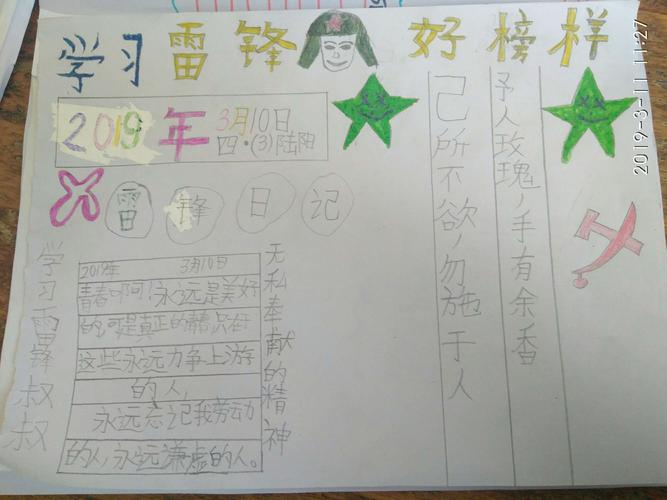 学习雷锋好榜样
2019年
3月10日
四·(3)陆阳
雷锋日记
学习雷锋叔叔
2019年 3月10日
青春啊!永远是美好
的,可是真正的青春只属于
这些永远力争上游
的人,
永远忘记我劳动
的人,永远谦虚的人。
无私奉献的精神
己所不欲,勿施于人
予人玫瑰,手有余香
2019-3-11 11:27